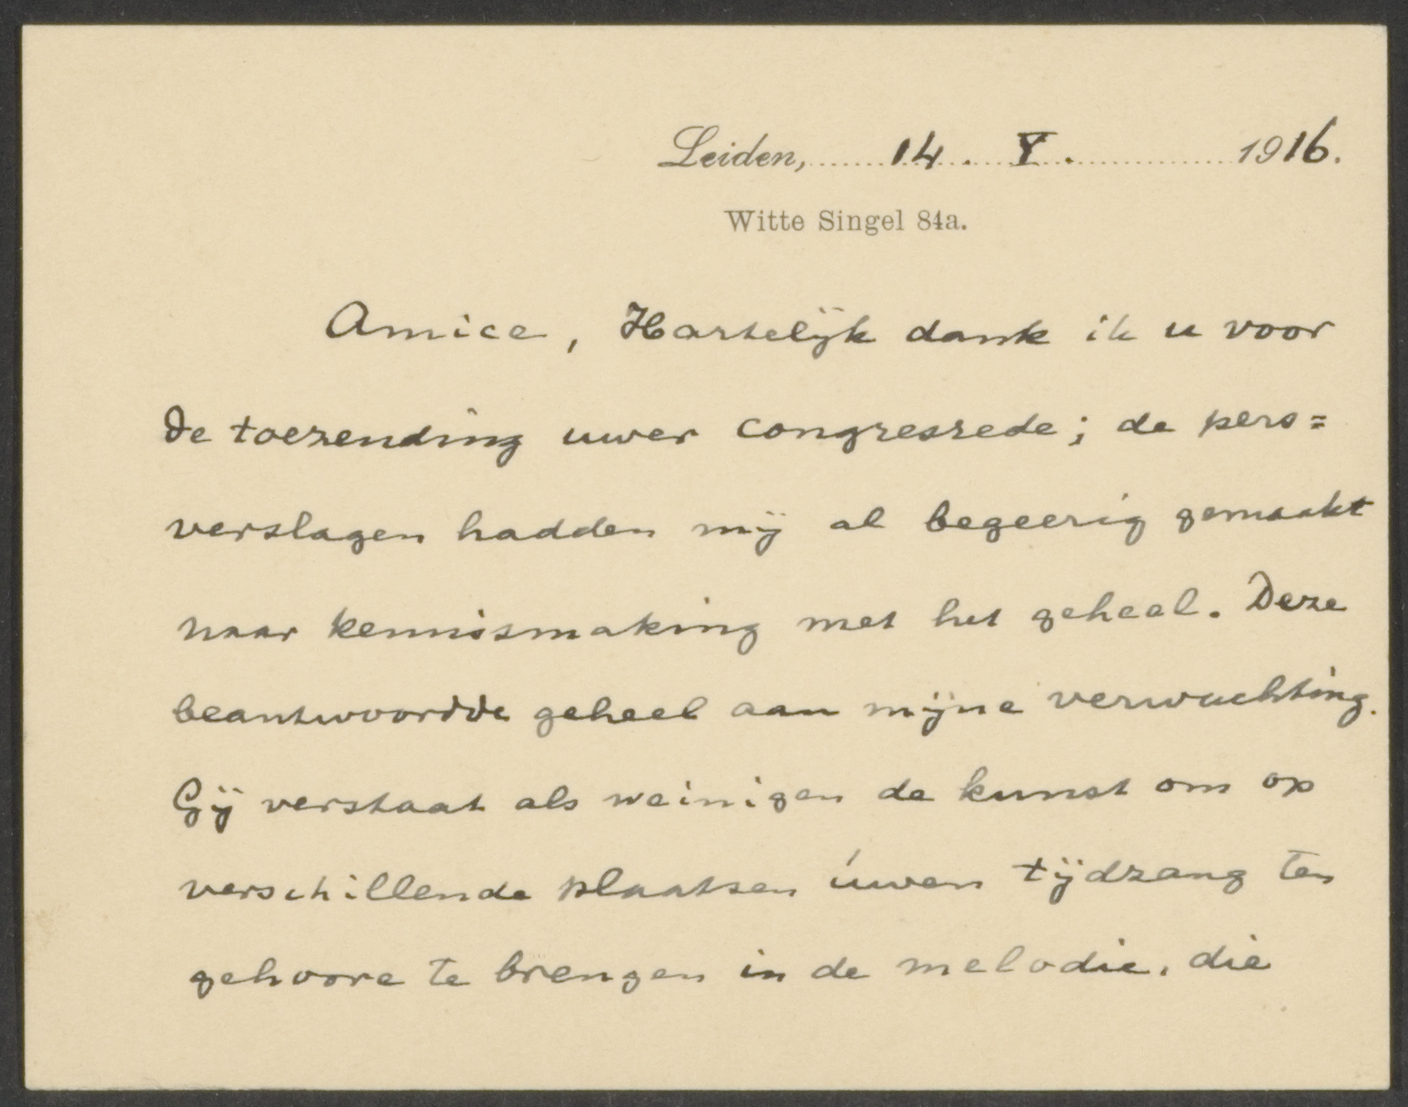 Leiden, 14. V. 1916.
Witte Singel 84a.
Amice, Hartelijk dank ik u voor
de toezending uwer congresrede; de pers=
verslagen hadden mij al begeerig gemaakt
naar kennismaking met het geheel. Deze
beantwoordde geheel aan mijne verwachting.
Gij verstaat als weinigen de kunst om op
verschillende plaatsen úwen tijdzang ten
gehoore te brengen in de melodie, die